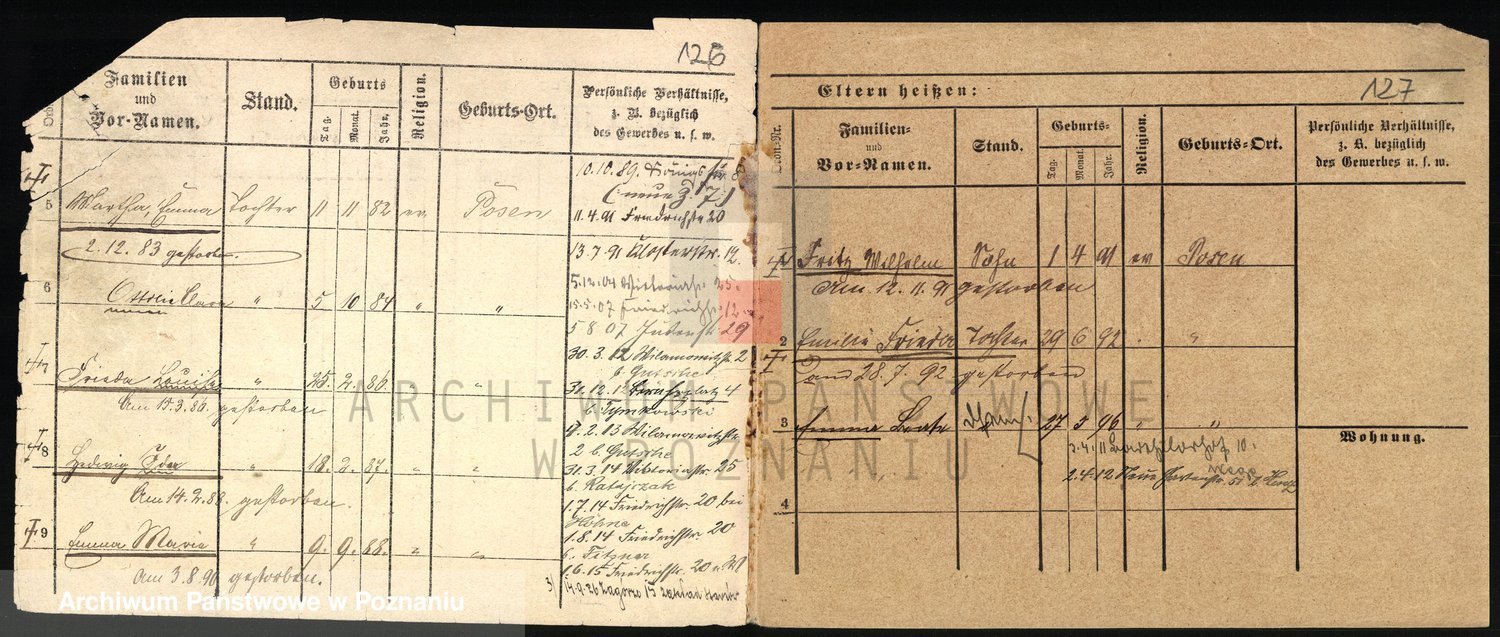 126
Familien
und
Vor-Namen.
Stand.
Geburts
Tag.
Monat.
Jahr.
Religion.
Geburts-Ort.
Persönliche Verhältnisse,
z. B. bezüglich
des Gewerbes u. s. w.
5 Martha, Emma Tochter 11 11 82 ev Posen
2.12.83 gestorben.
6 Ottilie Clara " 5 10 84 " "
7 Frieda Louise " 25. 2. 86. "
Am 15.3.86. gestorben
8 Hedwig Ida " 18. 2. 87. " "
Am 14.2.88. gestorben.
9 Emma Marie " 9. 9. 88. " "
Am 3.8.90 gestorben.
10.10.89. Königsstr. 8
(neue 7)
11.4.91 Friedrichstr 20
13.7.91 Klosterstr. 12
5.12.04 Victoriastr 25.
15.5.07 Friedrichstr. 12
5 8 07 Judenstr 29
30.3.12 Wilamowitzstr. 2
b Gutsche
31.12.12 platz 4
b. Tymkowski
2.13 Wilamowitzstr
2 b. Gutsche
31.3.14 Viktoriastr. 25
b. Ratajczak
1.7.14 Friedrichstr. 20 bei
Höhne
1.8.14 Friedrichstr. 20
b. Titzner
1.6.15 Friedrichstr. 20
3) 14.9.26 Zagórze 15
127
Eltern heißen:
Ordn.-Nr.
Familien-
und
Vor-Namen.
Stand.
Geburts-
Tag.
Monat.
Jahr.
Religion.
Geburts-Ort.
Persönliche Verhältnisse,
z. B. bezüglich
des Gewerbes u. s. w.
Fritz Wilhelm Sohn 1 4 91 ev Posen
Am 12.11.91 gestorben
2 Emilie Frieda Tochter 29 6 92 . "
am 28.7.92 gestorben
3 Emma Beate 27 5 96 " "
3.4.11 10.
2.4.12 Neue Gartenstr. 51 b.
4
Wohnung.
ARCHIWUM PAŃSTWOWE
W POZNANIU
Archiwum Państwowe w Poznaniu